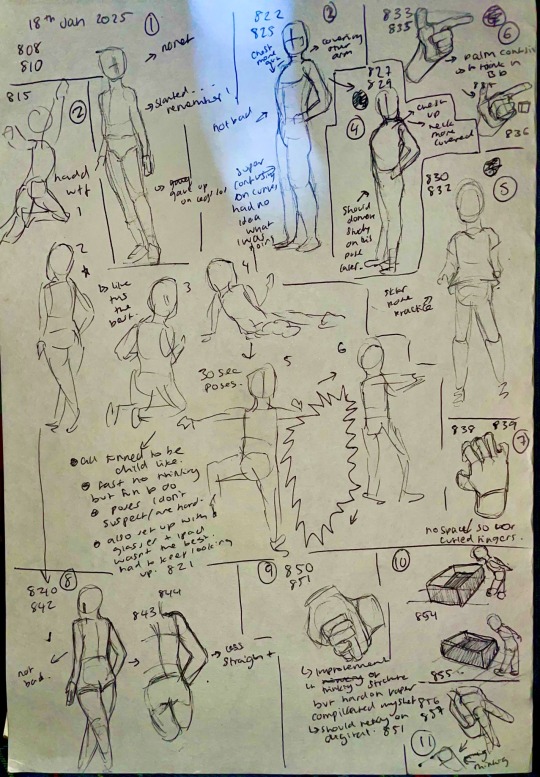 18th Jan 2025
808
810
1
→ no ref
slanted...
remember!
gave up
on legs lol
815
2
hard
wtf
1
822
825
3
chest
more
out
covering
other
arm
not bad
super
confusing
on curve,
had no
idea
what
I was
doing
827
829
4
chest
up
neck more
covered
should
do
study
on his
pose
later.
833
835
6
palm confusing
836
830
832
5
practice
2
like
this
the
best.
3
4
30 sec
poses.
5
6
all turned to be
child like.
fast no thinking
but fun to do
poses I don't
suspect/are hard.
also set up with
glasses + ipad
wasn't the best
had to keep looking
up. 821
838
839
7
no space so
curled fingers.
840
842
8
not
bad.
843
844
less
straight
9
850
851
improvement
structure
but hard on paper
complicated myself
should retry on
digital. 851
10
854
855
856
857
11
thinking